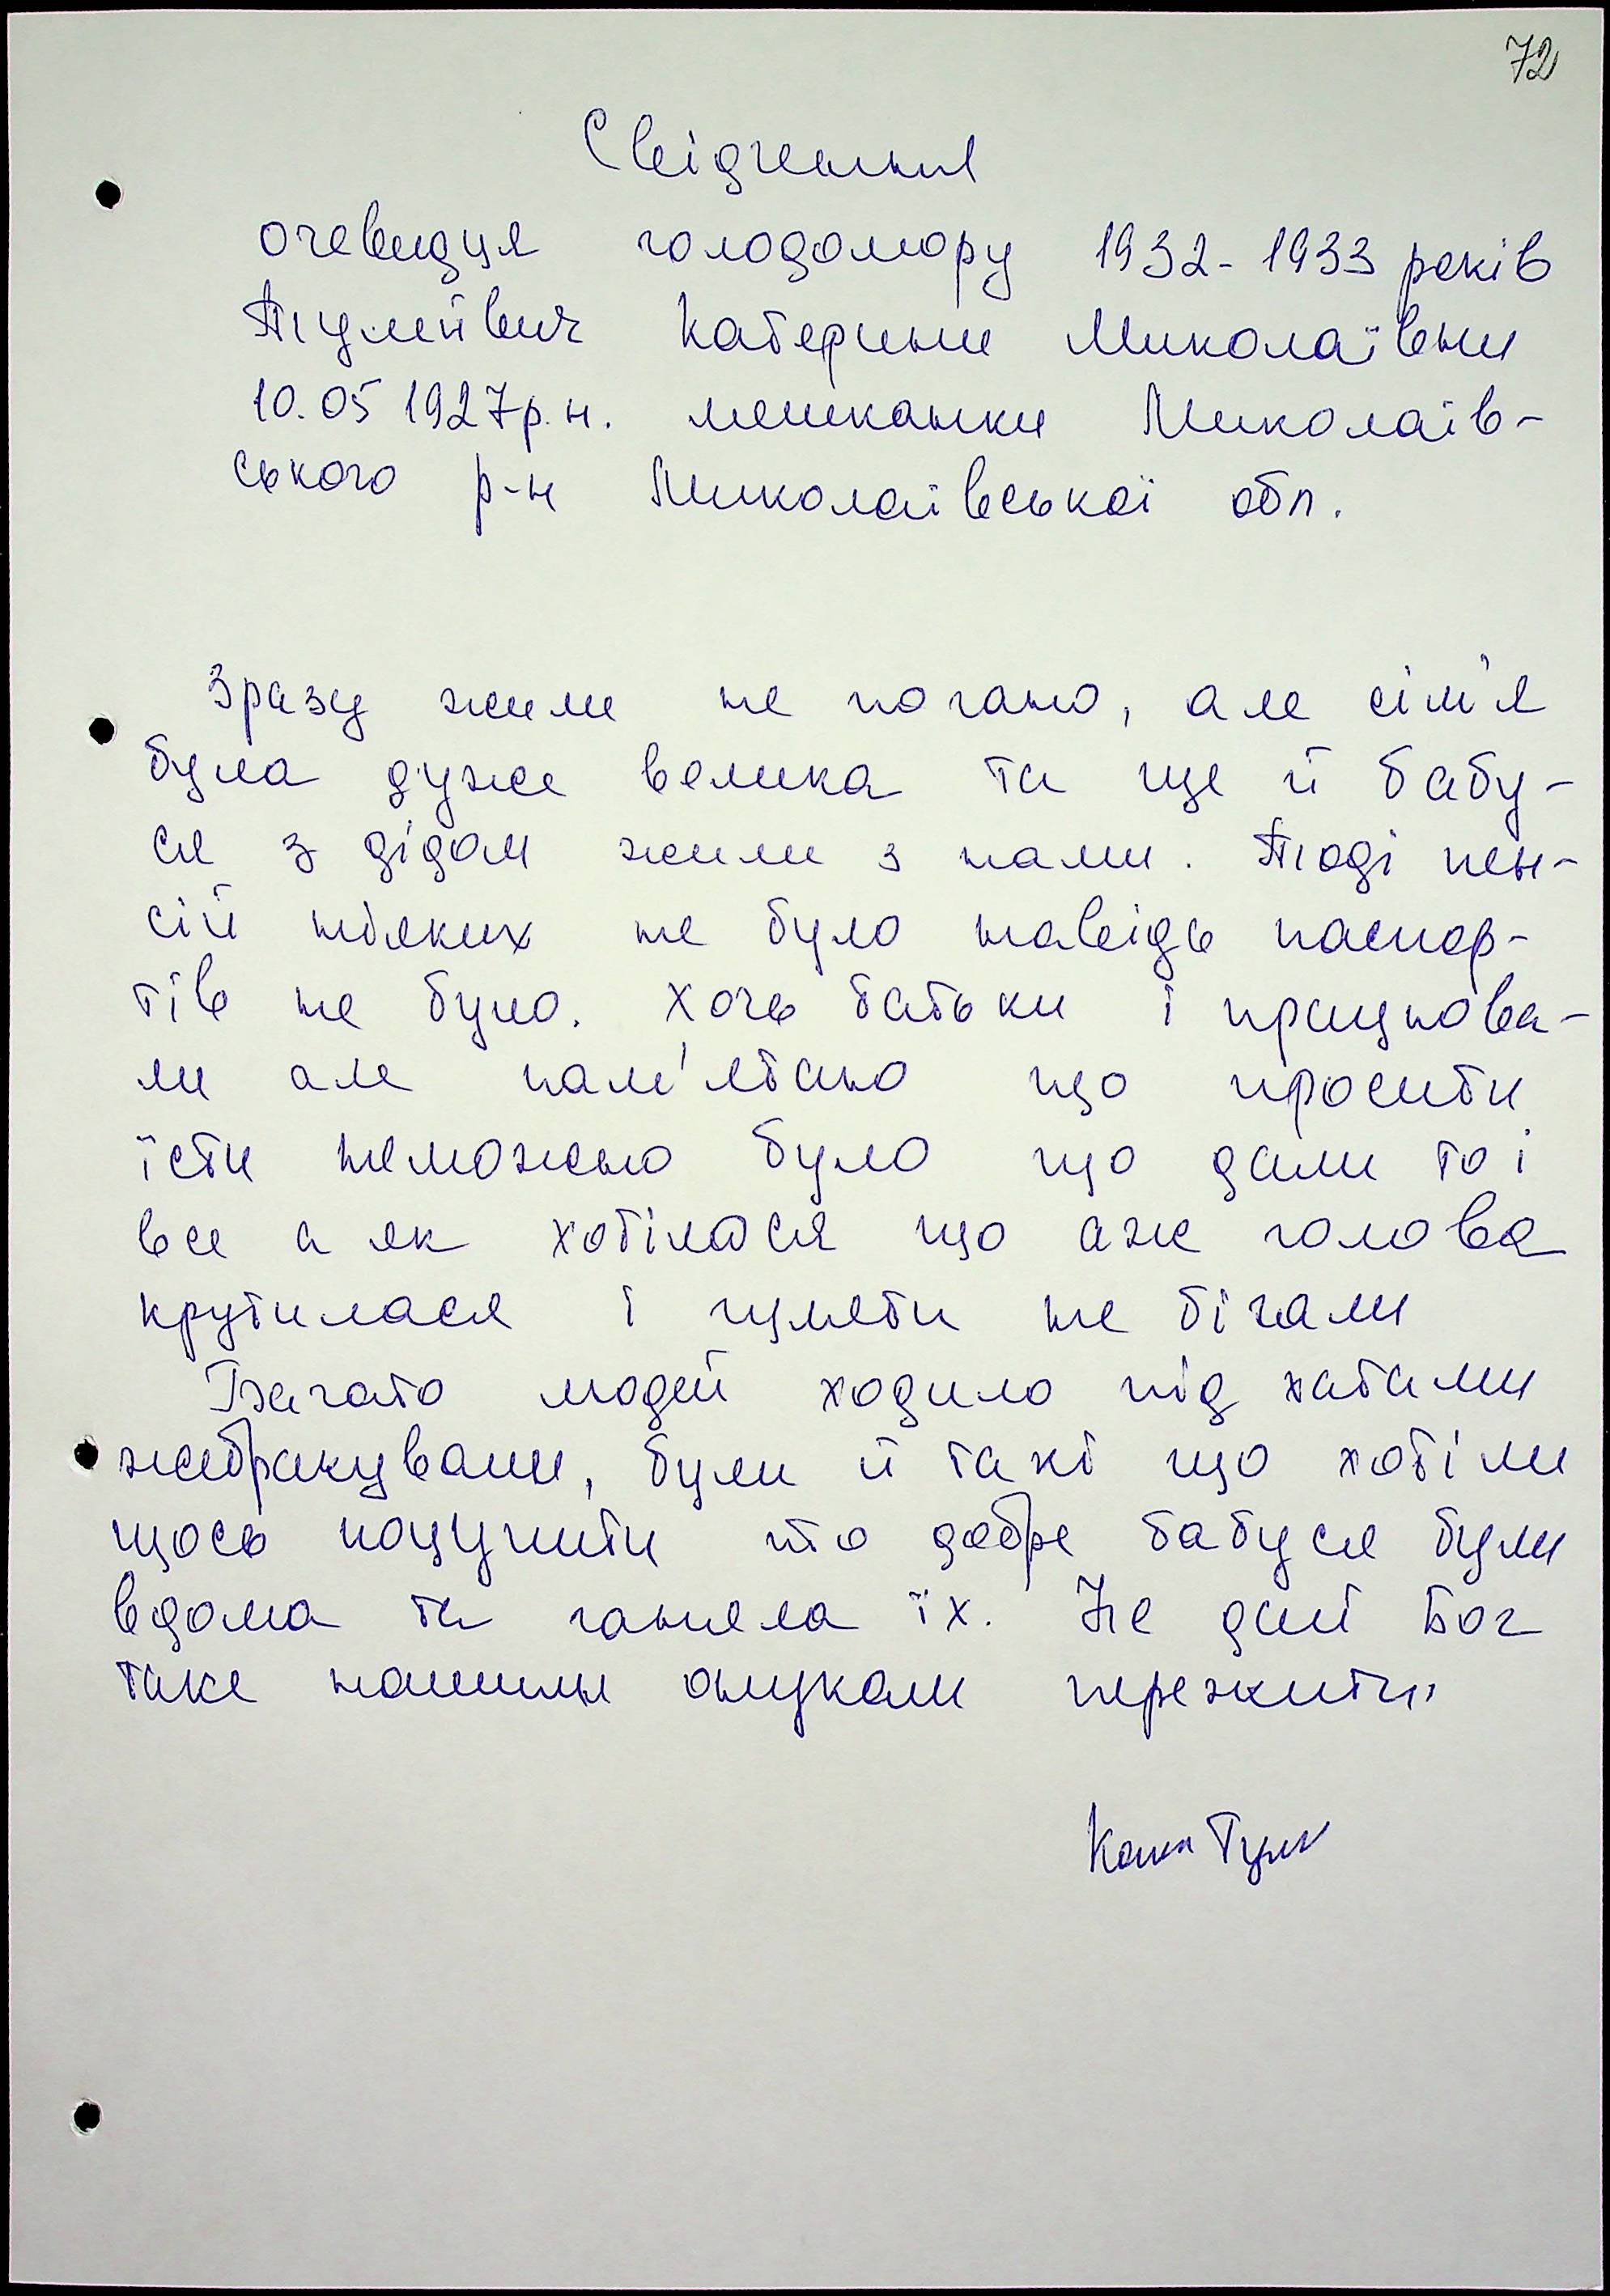 72
Свідчення
очевидця голодомору 1932-1933 років
Тулейвич Катерини Миколаївни
10.05 1927р.н. мешканки Миколаїв-
ського р-н Миколаївської обл.
Зразу жили не погано, але сім'я
була дуже велика та ще й бабу-
ся з дідом жили з нами. Тоді пен-
сій ніяких не було навідь паспор-
тів не було. Хочь батьки і працюва-
ли але пам'ятаю що просити
їсти неможно було що дали то і
все а як хотілося що аж голова
крутилася і гуляти не бігали
Багато людей ходило під хатами
жебракували, були й такі що хотіли
щось поцупити то добре бабуся були
вдома та ганяла їх. Не дай Бог
таке нашим онукам пережити